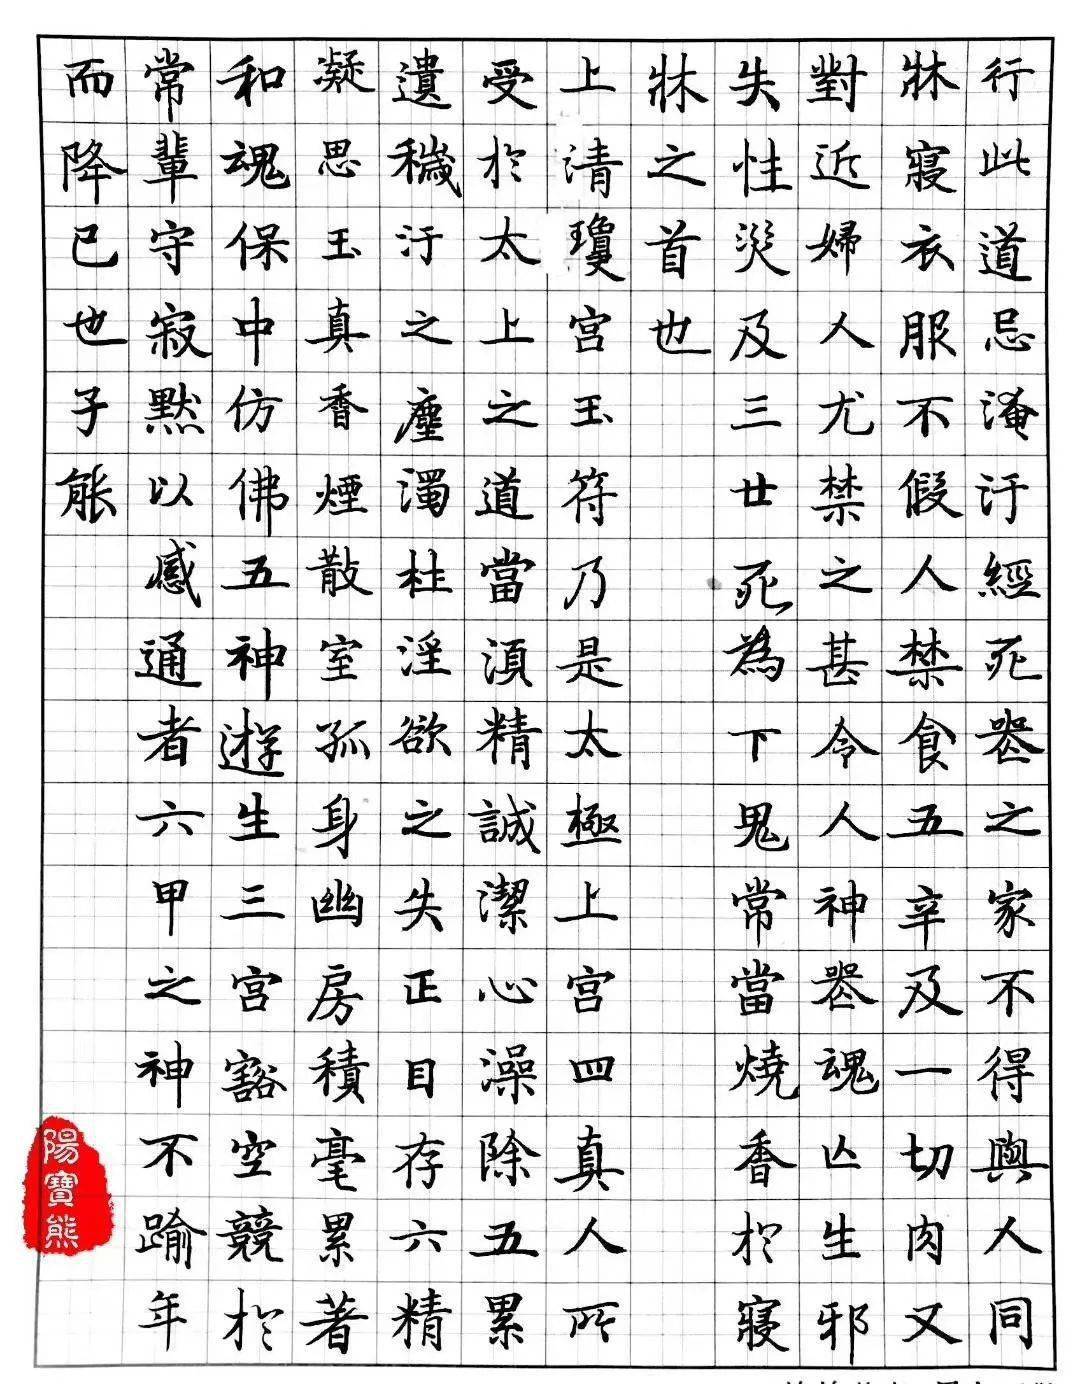 行此道忌淹汙經死喪之家不得與人同
牀寢衣服不假人禁食五辛及一切肉又
對近婦人尤禁之甚令人神喪魂亡生邪
失性災及三世死為下鬼常當燒香於寢
牀之首也
上清瓊宮玉符乃是太極上宮四真人所
受於太上之道當須精誠潔心澡除五累
遺穢汙之塵濁杜淫欲之失正目存六精
凝思玉真香煙散室孤身幽房積毫累著
和魂保中仿佛五神遊生三宮豁空競於
常輩守寂默以感通者六甲之神不踰年
而降已也子能
陽寶熊